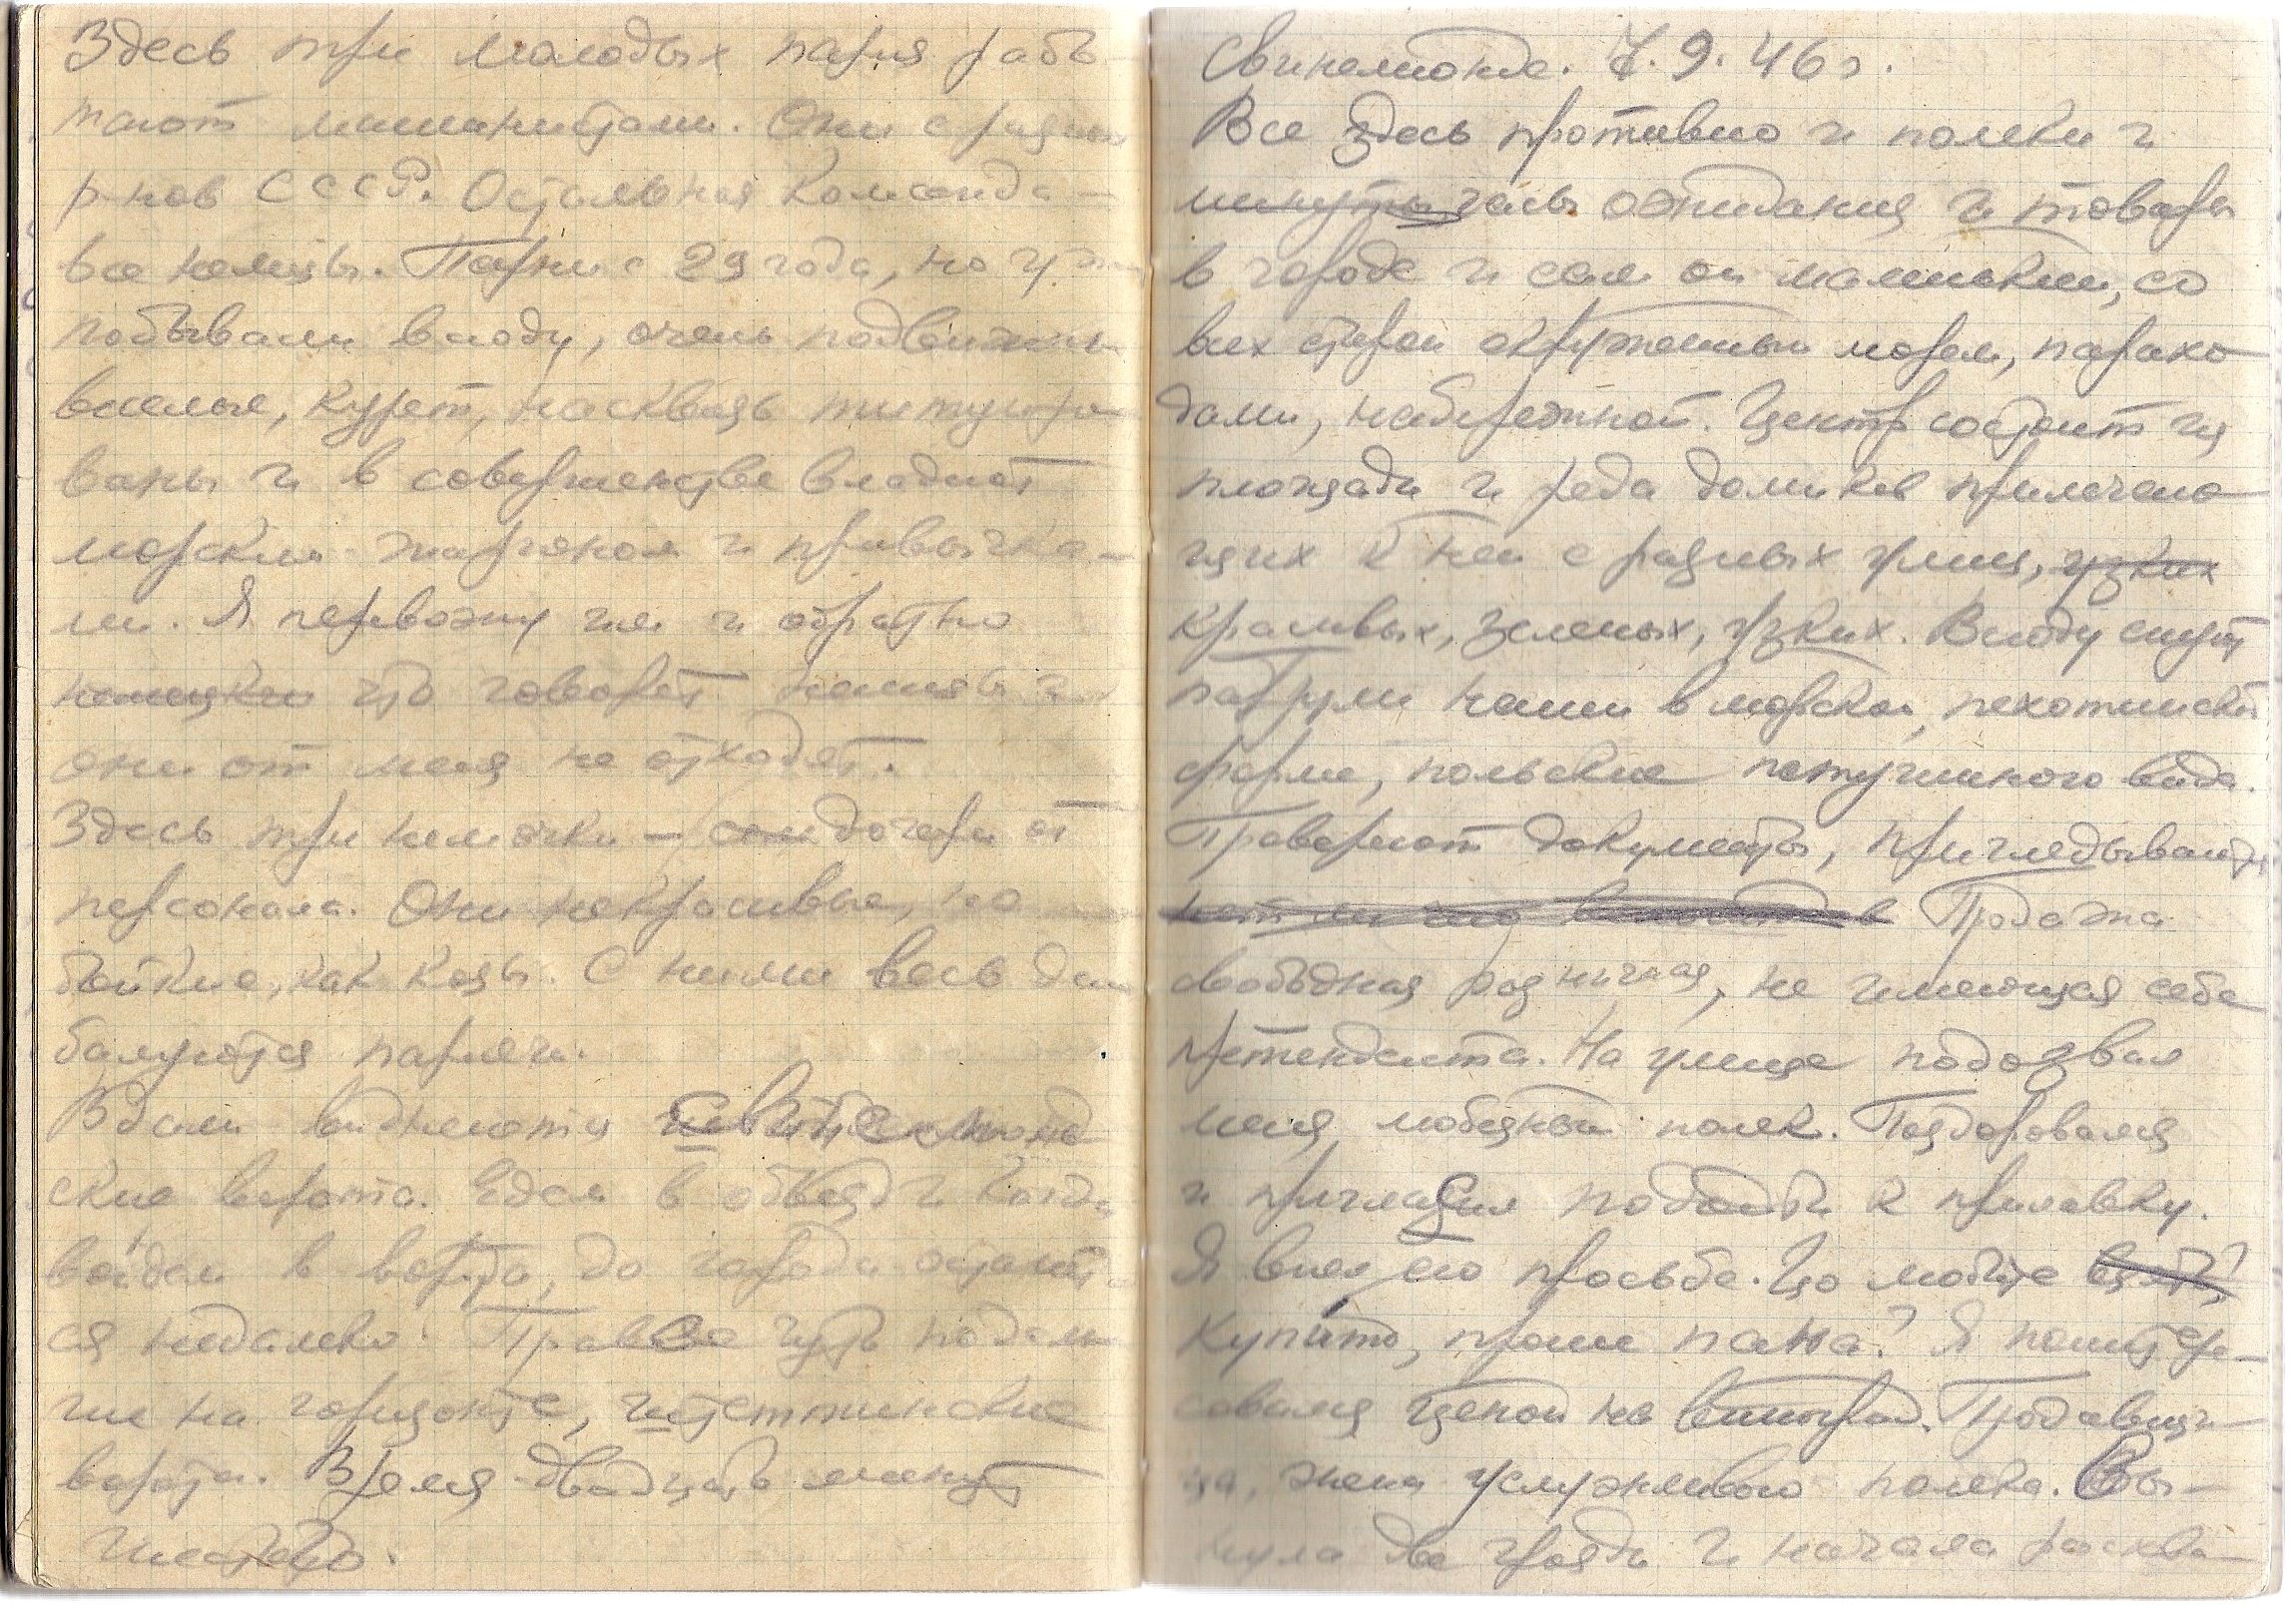 Здесь три молодых парня рабо
тают машинистами. Они с разных
р-нов СССР. Остальная команда –
все немцы. Парни с 29 года, но уже
побывали всюду, очень подвижны
веселые, курят, насквозь татуиро
ваны и в совершенстве владеют
морским жаргоном и привычка–
ми. Я перевожу им и обратно
немецкий что говорят немцы и
они от меня не отходят.
Здесь три немочки – сам дочери от
персонала. Они некрасивые, но
бойкие, как козы. С ними весь день
балуются парни.
Вдали виднеются свинемюнд
ские ворота. Едем в объезд и когда
войдем в ворота, до города останет
ся недалеко. Правее чуть подаль
ше на горизонте, штеттинские
ворота. Время двадцать минут
шестого.
Свинемюнде. 7.9.46 г.
Все здесь противно и поляки и
минуты часы ожидания и товары
в городе и сам он маленький, со
всех сторон окруженный морем, парохо
дами, набережной. Центр состоит из
площади и ряда домиков прилегаю
щих к ней с разных улиц, узких
красивых, зеленых, узких. Всюду снуют
патрули наши в морской, пехотинской
форме, польские петушиного вида.
Проверяют документы, приглядываются
нет ли чего Продажа
свободная розничная, не имеющая себе
претендента. На улице подозвал
меня любезный поляк. Поздоровался
и пригласил подойти к прилавку.
Я внял его просьбе. Цо может взять?
купить, проше пана? Я поинтере–
совался ценой на виноград. Продавщи–
ца, жена услужливого поляка. Вы–
нула две грозди и начала расхва–